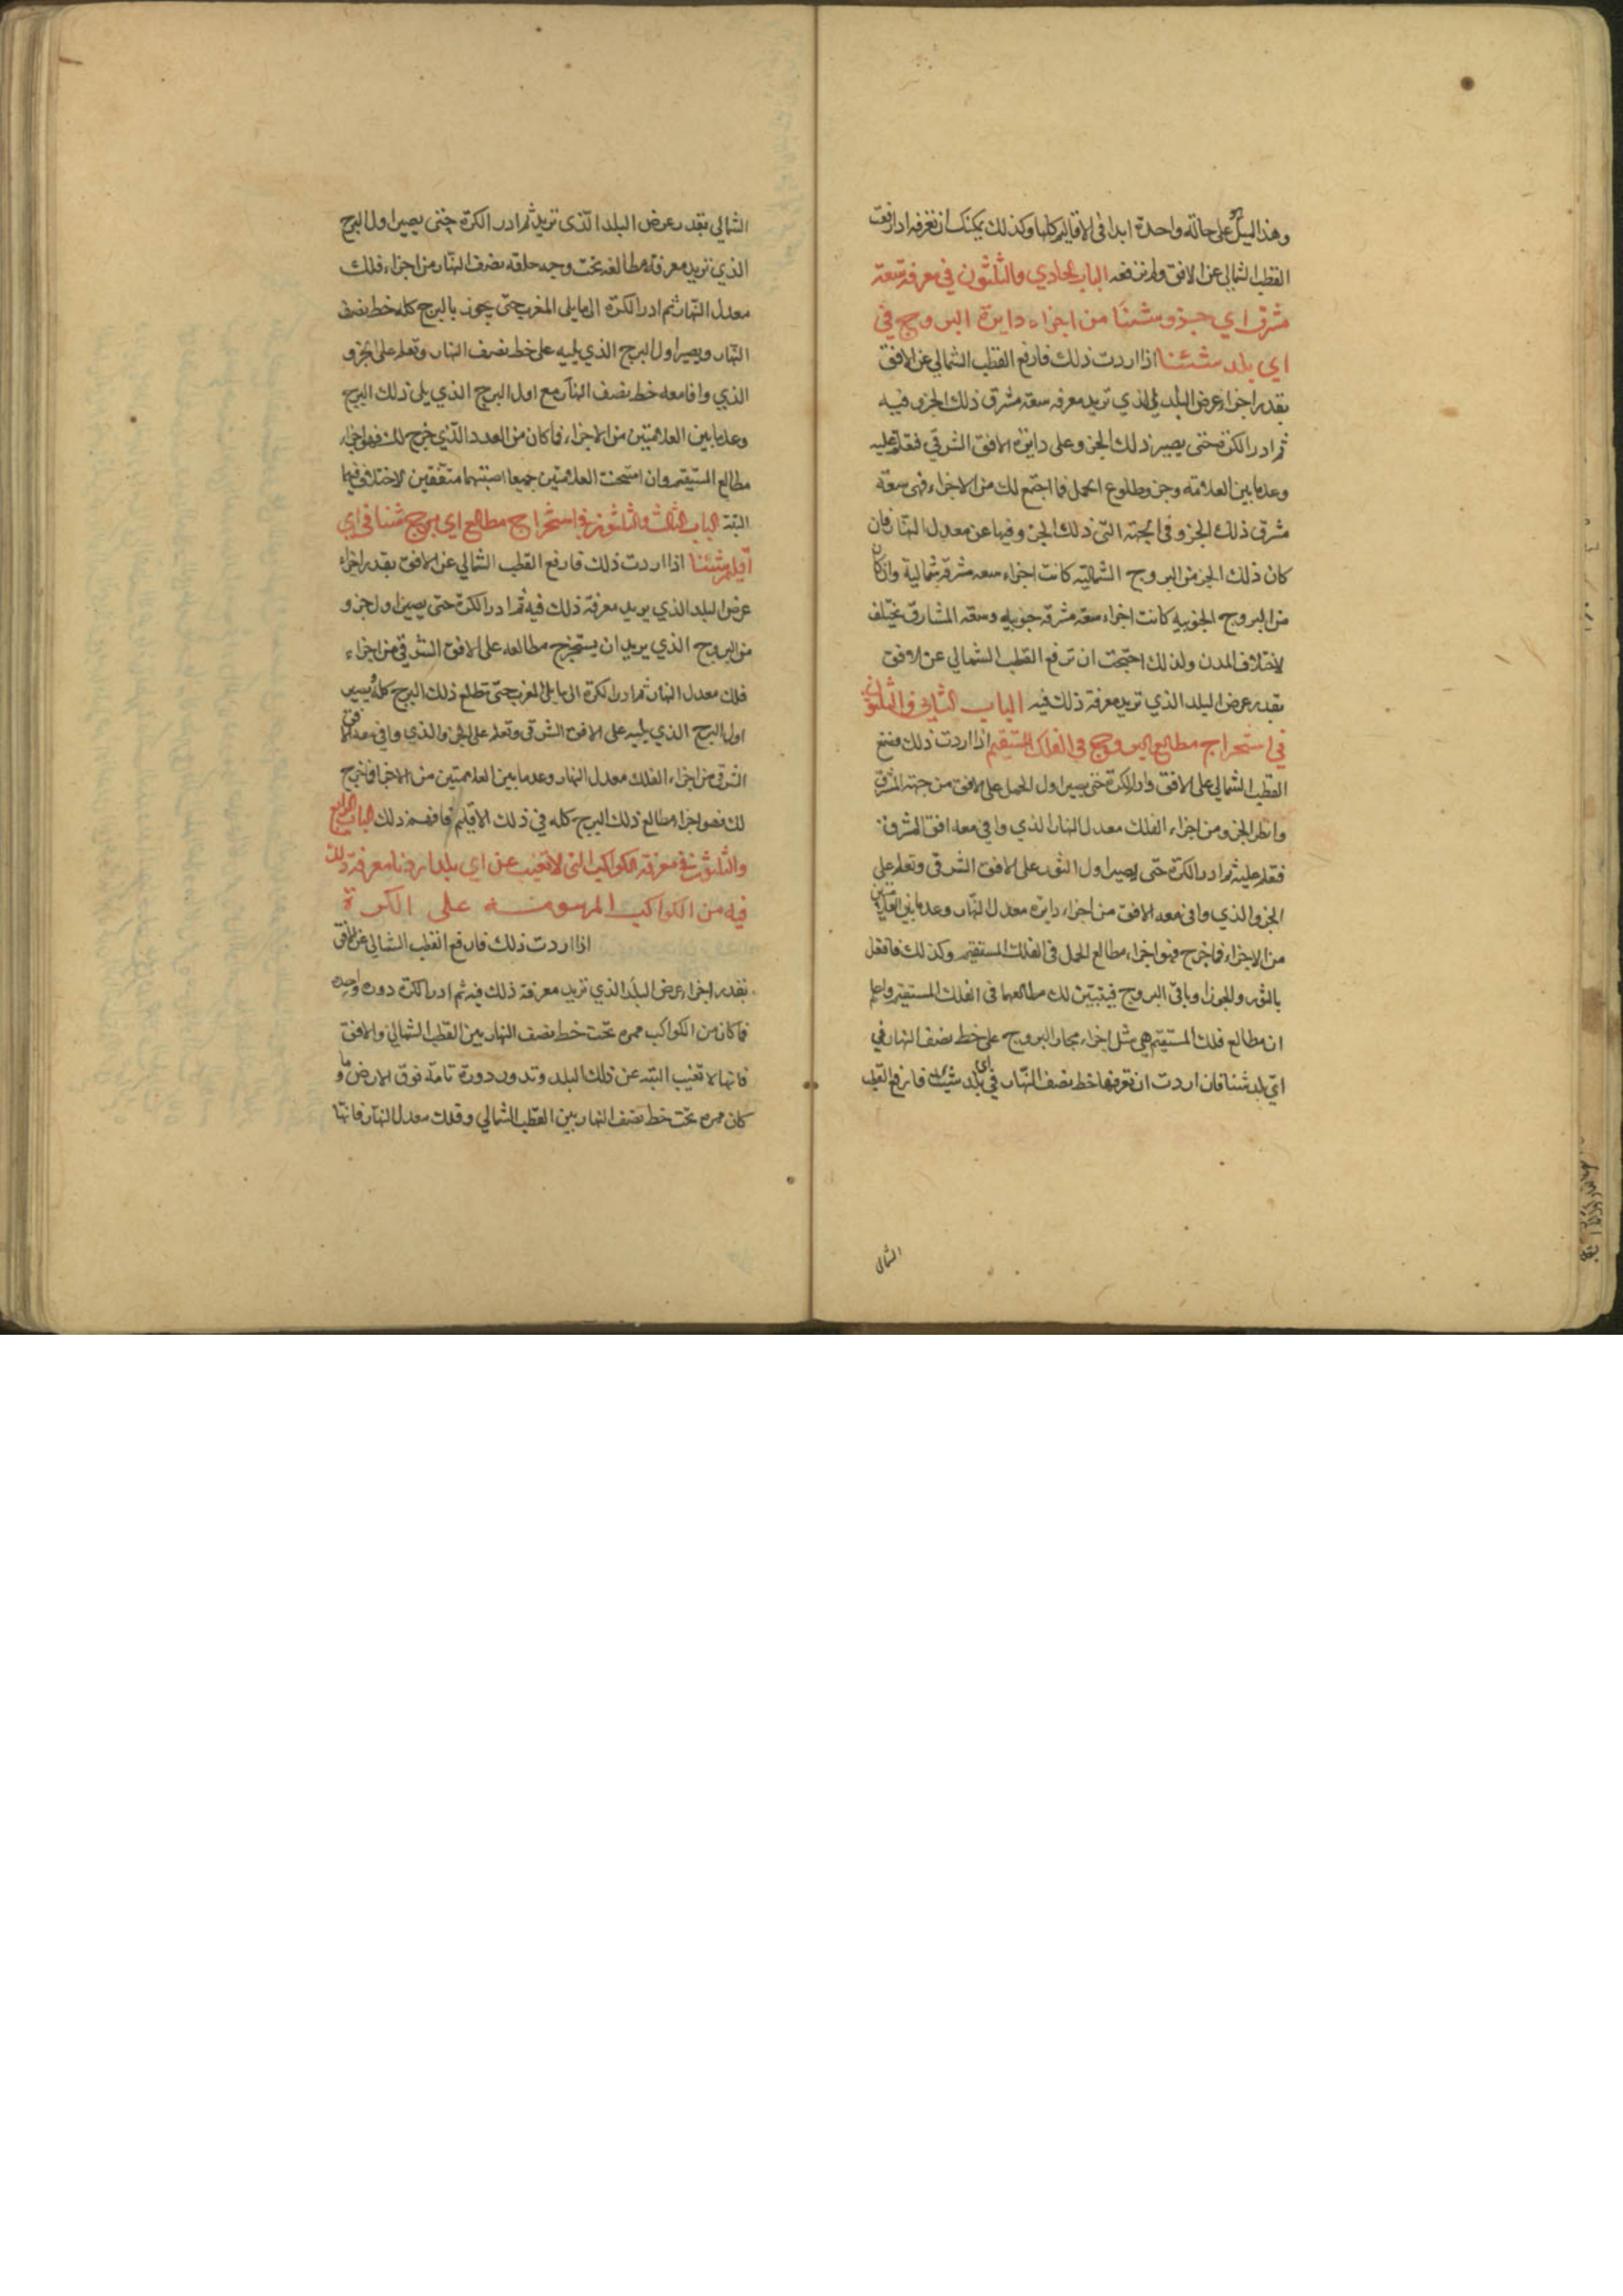 وهذا الميل على حالة واحدة ابدا فى الاقاليم كلها وكذلك يمكنك ان تعرفه اذا رفعت
القطب الشمالي عن الافق ولم ترفعه الباب الحادي والثلثون في معرفة سعة
مشرق اي جزو شئنا من اجزاء دايرة البروج في
اي بلد شئنا اذا اردت ذلك فارفع القطب الشمالي عن الافق
بقدر اجزاء عرض البلد الذي تريد معرفه سعة مشرق ذلك الجزو فيه
ثم ادر الكرة حتى يصير ذلك الجزو على دايرة الافق الشرقي فتعلم عليه
وعد ما بين العلامة وجزو طلوع الحمل فما اجتمع لك من الاجزاء فهى سعة
مشرق ذلك الجزو فى الجهة التى ذلك الجزو فيها عن معدل النهار فان
كان ذلك الجز من البروج الشمالية كانت اجزاء سعه مشرقه شمالية وان كان
من البروج الجنوبيه كانت اجزاء سعة مشرقه جنوبيه وسعة المشارق يختلف
لاختلاف المدن ولذلك احتجت ان ترفع القطب الشمالي عن الافق
بقدر عرض البلد الذي تريد معرفة ذلك فيه الباب الثاني والثلثون
في استخراج مطالع البروج فى الفلك المستقيم اذا اردت ذلك فضع
القطب الشمالي على الافق وادر الكرة حتى يصير اول الحمل على الافق من جهة المشرق
وانظر الجزو من اجزاء الفلك معدل النهار الذي وافي معه افق المشرق
فتعلم عليه ثم ادر الكرة حتى يصير اول الثور على الافق الشرقى وتعلم على
الجزو الذي وافى معه الافق من اجزاء دايرة معدل النهار وعد ما بين العلامتين
من الاجزاء فما خرج فهو اجزاء مطالع الحمل فى الفلك المستقيم وكذلك فافعل
بالثور والجوزا وباقى البروج فيتبين لك مطالعها فى الفلك المستقيم واعلم
ان مطالع فلك المستقيم هي مثل اجزاء مجاز البروج على خط نصف النهار في
اي بلد شئنا فان اردت ان تعرفها خط نصف النهار في اي بلد شئت فارفع القطب
الشمالى
الشمالي بقدر عرض البلد الذى تريد ثم ادر الكرة حتى يصير اول البرج
الذي تريد معرفة مطالعه تحت وجه حلقه نصف النهار من اجزاء فلك
معدل النهار ثم ادر الكرة الى ما يلي المغرب حتى يجوز بالبرج كله خط نصف
النهار ويصير اول البرج الذي يليه على خط نصف النهار وتعلم على الجزو
الذي وافا معه خط نصف النهار مع اول البرج الذي يلي ذلك البرج
وعد ما بين العلامتين من الاجزاء فما كان من العدد الذي خرج لك فهو اجزاء
مطالع المستقيم وان امتحنت العلامتين جميعا اصبتهما متفقين لا اختلاف فيها
البتة الباب الثالث والثلثون في استخراج مطالع اي برج شئنا في اي
اقليم شئنا اذا اردت ذلك فارفع القطب الشمالي عن الافق بقدر اجزاء
عرض البلد الذي يريد معرفة ذلك فيه ثم ادر الكرة حتى يصير اول جزو
من البروج الذي يريد ان يستخرج مطالعه على الافق الشرقي من اجزاء
فلك معدل النهار ثم ادر الكرة الى ما يلي المغرب حتى تطلع ذلك البرج كله ويصير
اول البرج الذي يليه على الافق الشرقى وتعلم على الجزو الذي وافي معه الافق
الشرقى من اجزاء الفلك معدل النهار وعد ما بين العلامتين من الاجزا فما خرج
لك فهو اجزاء مطالع ذلك البرج كله في ذلك الاقليم فافهم ذلك الباب الرابع
والثلثون في معرفة الكواكب التى لا تغيب عن اي بلد اردنا معرفة ذلك
فيه من الكواكب المرسومة على الكرة
اذا اردت ذلك فارفع القطب الشمالي عن الافق
بقدر اجزاء عرض البلد الذي تريد معرفة ذلك فيه ثم ادر الكرة دورة واحدة
فما كان من الكواكب ممره تحت خط نصف النهار بين القطب الشمالي والافق
فانها لا تغيب البته عن ذلك البلد وتدور دورة تامة فوق الارض وما
كان ممره تحت خط نصف النهار بين القطب الشمالي وفلك معدل النهار فانها